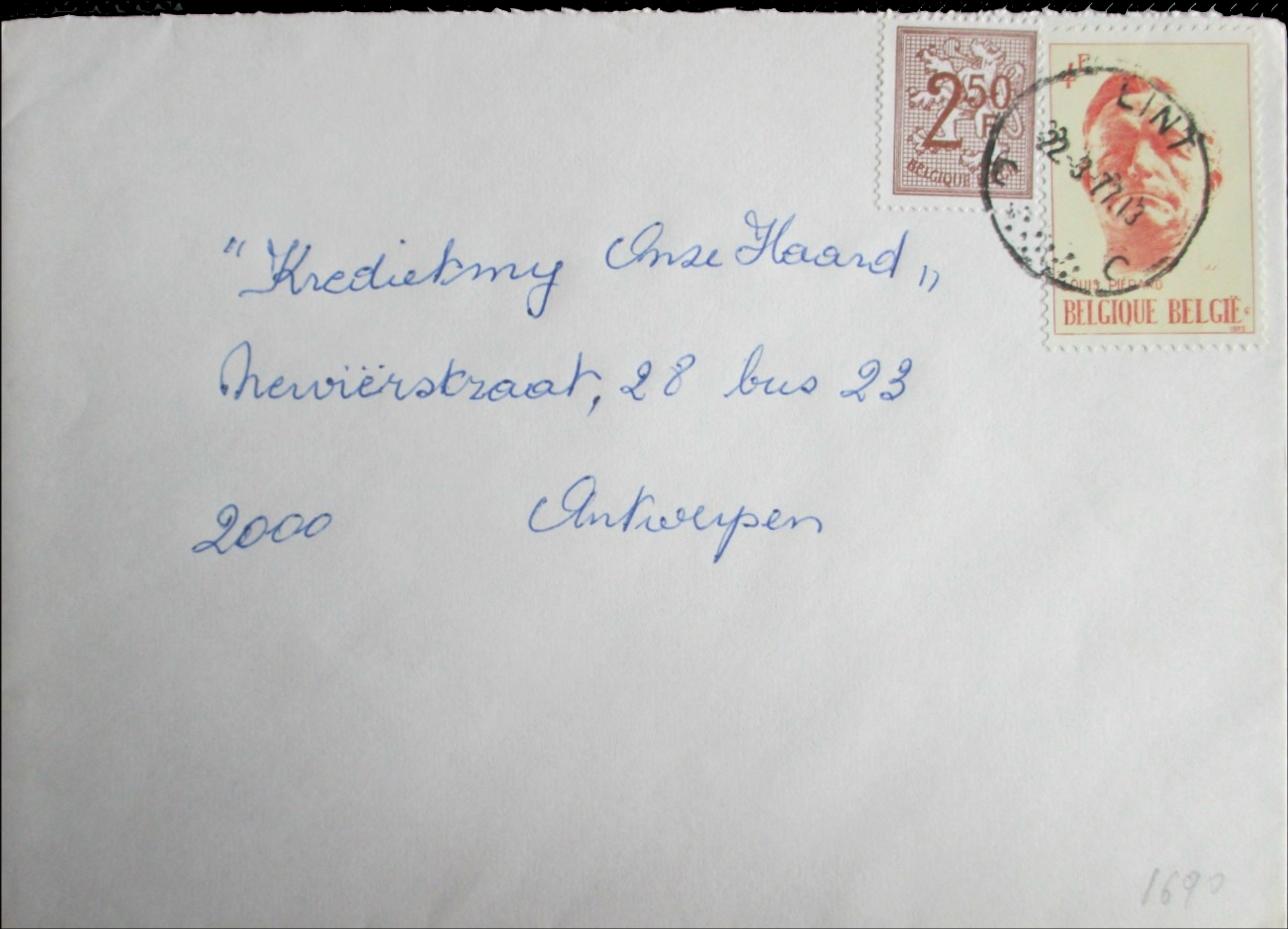 2 50 F
BELGIQUE
4F
LINT
22-3-77.13
C
C
LOUIS PIÉRARD
BELGIQUE BELGIË
"Kredietmy Onze Haard"
28 bus 23
2000 Antwerpen
1690